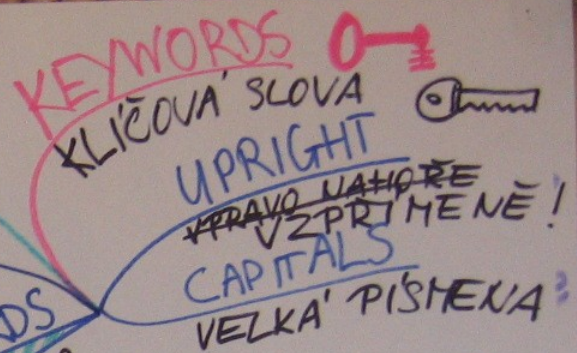 KEYWORDS
KLÍČOVÁ SLOVA
UPRIGHT
VPRAVO NAHOŘE
VZPŘÍMENĚ!
CAPITALS
VELKÁ PÍSMENA
DS